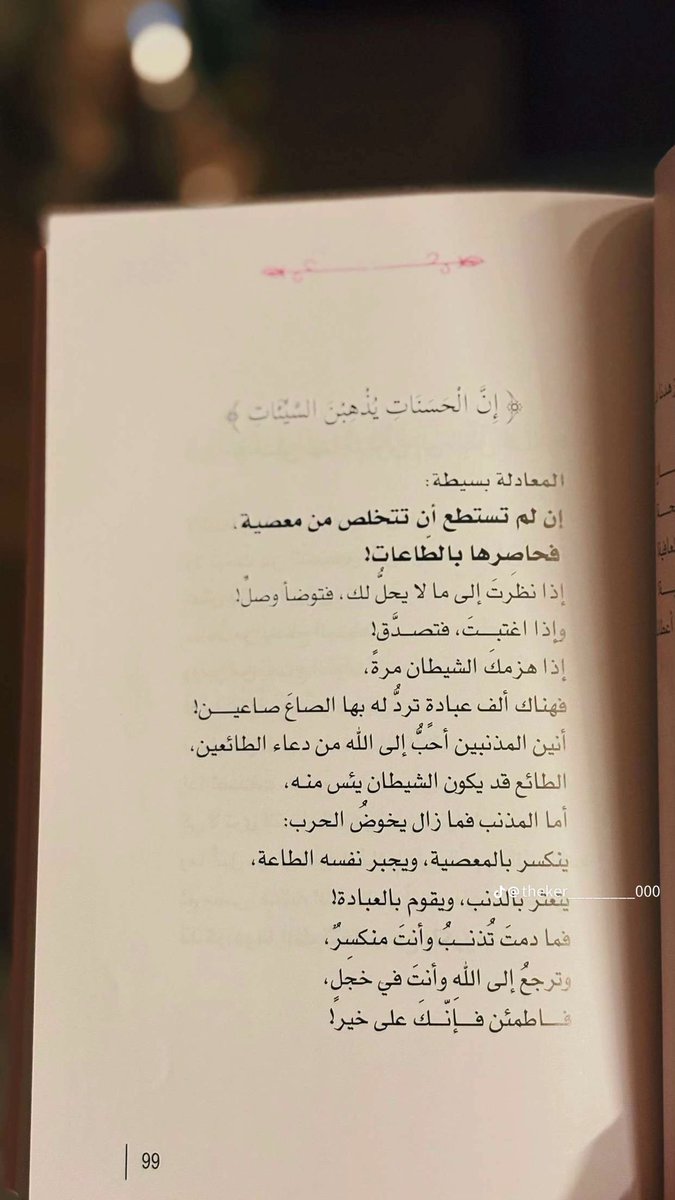 ﴿ إِنَّ الْحَسَنَاتِ يُذْهِبْنَ السَّيِّئَاتِ ﴾
المعادلة بسيطة:
إن لم تستطع أن تتخلص من معصية.
فحاصرها بالطّاعات!
إذا نظرتَ إلى ما لا يحلُّ لك، فتوضأ وصلِّ!
وإذا اغتبـتَ، فتصـدَّق!
إذا هزمكَ الشيطان مرةً،
فهناك ألف عبادة تردُّ له بها الصاعَ صاعيـن!
أنين المذنبين أحبُّ إلى الله من دعاء الطائعين،
الطائع قد يكون الشيطان يئس منـه،
أما المذنب فما زال يخوضُ الحرب:
ينكسر بالمعصية، ويجبر نفسه الطاعة،
يتعثر بالذنب، ويقوم بالعبادة!
@theker________000
فما دمتَ تُذنـبُ وأنتَ منكسِرٌ،
وترجعُ إلى اللهِ وأنتَ في خجلٍ،
فـاطمئن فـإنّـكَ على خير!
99